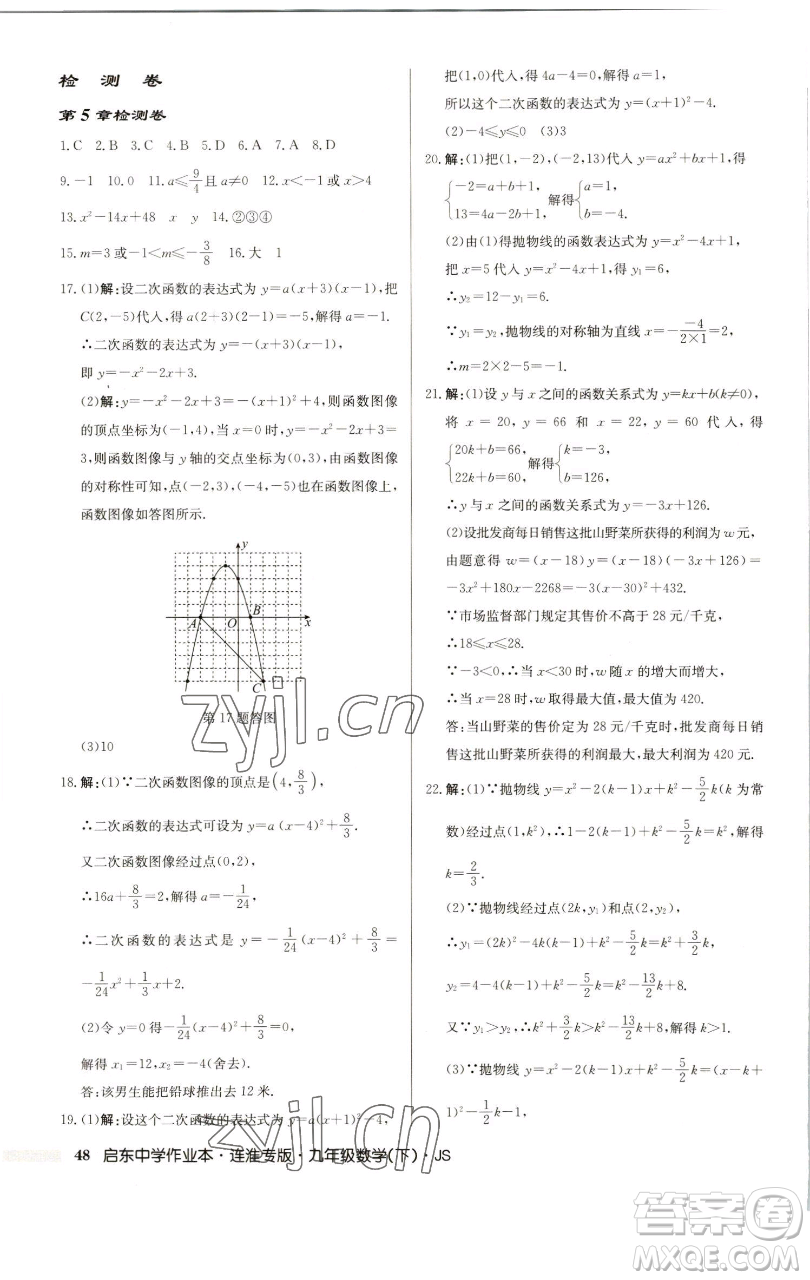 检 测 卷
第5章检测卷
1.C 2.B 3.C 4.B 5.D 6.A 7.A 8.D
9.-1 10.0 11.a≤9/4且a≠0 12.x<-1或x>4
13.x²-14x+48 x y 14.②③④
15.m=3或-1<m≤-3/8 16.大 1
17.(1)解:设二次函数的表达式为y=a(x+3)(x-1),把
C(2,-5)代入,得a(2+3)(2-1)=-5,解得a=-1.
∴二次函数的表达式为y=-(x+3)(x-1),
即y=-x²-2x+3.
(2)解:y=-x²-2x+3=-(x+1)²+4,则函数图像
的顶点坐标为(-1,4),当x=0时,y=-x²-2x+3=
3,则函数图像与y轴的交点坐标为(0,3),由函数图像
的对称性可知,点(-2,3),(-4,-5)也在函数图像上,
函数图像如答图所示.
y
A O B x
C
第17题答图
(3)10
18.解:(1)∵二次函数图像的顶点是(4,8/3),
∴二次函数的表达式可设为y=a(x-4)²+8/3.
又二次函数图像经过点(0,2),
∴16a+8/3=2,解得a=-1/24,
∴二次函数的表达式是y=-1/24(x-4)²+8/3=
-1/24x²+1/3x+2.
(2)令y=0得-1/24(x-4)²+8/3=0,
解得x₁=12,x₂=-4(舍去).
答:该男生能把铅球推出去12米.
19.(1)解:设这个二次函数的表达式为y=a(x+1)²-4,
把(1,0)代入,得4a-4=0,解得a=1,
所以这个二次函数的表达式为y=(x+1)²-4.
(2)-4≤y≤0 (3)3
20.解:(1)把(1,-2),(-2,13)代入y=ax²+bx+1,得
{-2=a+b+1, 13=4a-2b+1, 解得{a=1, b=-4.
(2)由(1)得抛物线的函数表达式为y=x²-4x+1,
把x=5代入y=x²-4x+1,得y₁=6.
∴y₂=12-y₁=6.
∵y₁=y₂,抛物线的对称轴为直线x=-(-4)/(2×1)=2,
∴m=2×2-5=-1.
21.解:(1)设y与x之间的函数关系式为y=kx+b(k≠0),
将x=20,y=66和x=22,y=60代入,得
{20k+b=66, 22k+b=60, 解得{k=-3, b=126,
∴y与x之间的函数关系式为y=-3x+126.
(2)设批发商每日销售这批山野菜所获得的利润为w元,
由题意得w=(x-18)y=(x-18)(-3x+126)=
-3x²+180x-2268=-3(x-30)²+432.
∵市场监督部门规定其售价不高于28元/千克,
∴18≤x≤28.
∵-3<0,∴当x<30时,w随x的增大而增大,
∴当x=28时,w取得最大值,最大值为420.
答:当山野菜的售价定为28元/千克时,批发商每日销
售这批山野菜所获得的利润最大,最大利润为420元.
22.解:(1)∵抛物线y=x²-2(k-1)x+k²-5/2k(k为常
数)经过点(1,k²),∴1-2(k-1)+k²-5/2k=k²,解得
k=2/3.
(2)∵抛物线经过点(2k,y₁)和点(2,y₂),
∴y₁=(2k)²-4k(k-1)+k²-5/2k=k²+3/2k,
y₂=4-4(k-1)+k²-5/2k=k²-13/2k+8.
又∵y₁>y₂,∴k²+3/2k>k²-13/2k+8,解得k>1.
(3)∵抛物线y=x²-2(k-1)x+k²-5/2k=(x-k+
1)²-1/2k-1,
48 启东中学作业本·连淮专版·九年级数学(下)·JS
zyjl.cn
zyjl.cn
答案圈
MXQE.COM